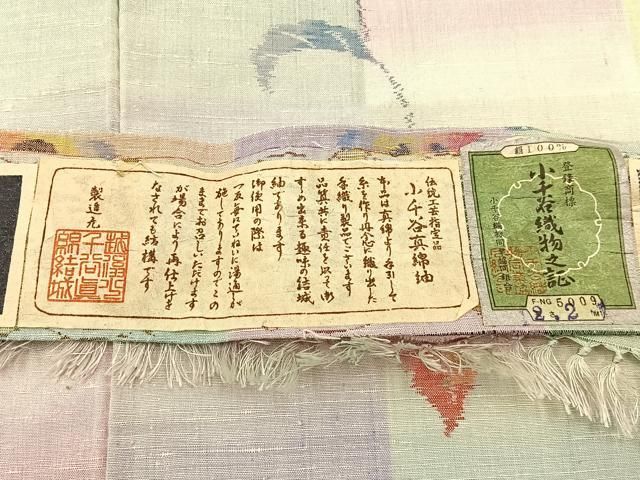 伝統工芸指定品
小千谷真綿紬
本品は真綿より手引して
糸を作り丹念に織り出た
手織り製品でございます
品質共に責任を以て御
すすめ出来る趣味の結城
紬であります
御使用の際は
一反毎ていねいに湯通しが
施してありますのでこの
ままでお召しいただけます
が場合により再仕上げを
なされても結構です
製造元
絹100%
登録商標
小千谷織物之証
小千谷織物同業協同組合
F-NG 5009
2.2